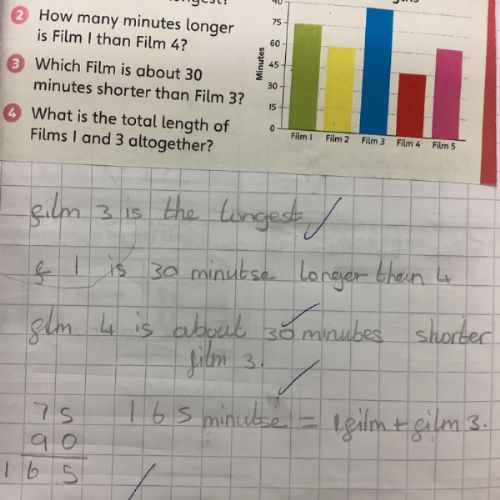 2 How many minutes longer
is Film 1 than Film 4?
3 Which Film is about 30
minutes shorter than Film 3?
4 What is the total length of
Films 1 and 3 altogether?
Minutes
75
60
45
30
15
0
Film 1 Film 2 Film 3 Film 4 Film 5
film 3 is the longest
f 1 is 30 minutse longer then 4
film 4 is about 30 minutes shorter
film 3.
75
90
165
165 minutse = 1film + film 3.